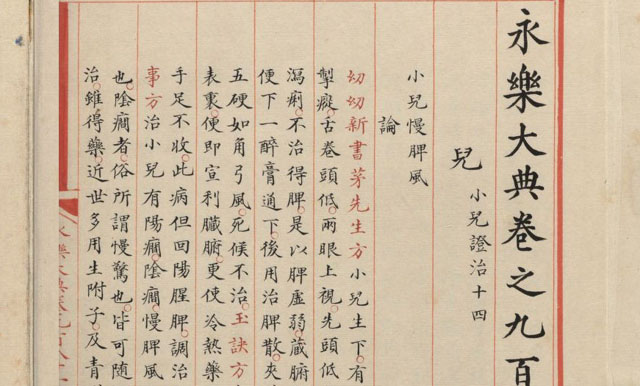 永樂大典卷之九百
兒 小兒證治十四
小兒慢脾風
論
切切新書茅先生方小兒生下有
掣癡古卷頭低兩眼上視先頭低
瀉痢不治得脾是以脾虛弱藏腑
便下一醉膏通下後用治脾散夾
五硬如角弓風死候不治玉訣方
表裏便即宣利臟腑更使冷熱藥
手足不收此病但回陽腥脾調治
事方治小兒有陽癇陰癇慢脾風
也陰癇者俗所謂慢驚也皆可隨
治雖得藥近世多用生附子及青
永樂大典卷九百八十